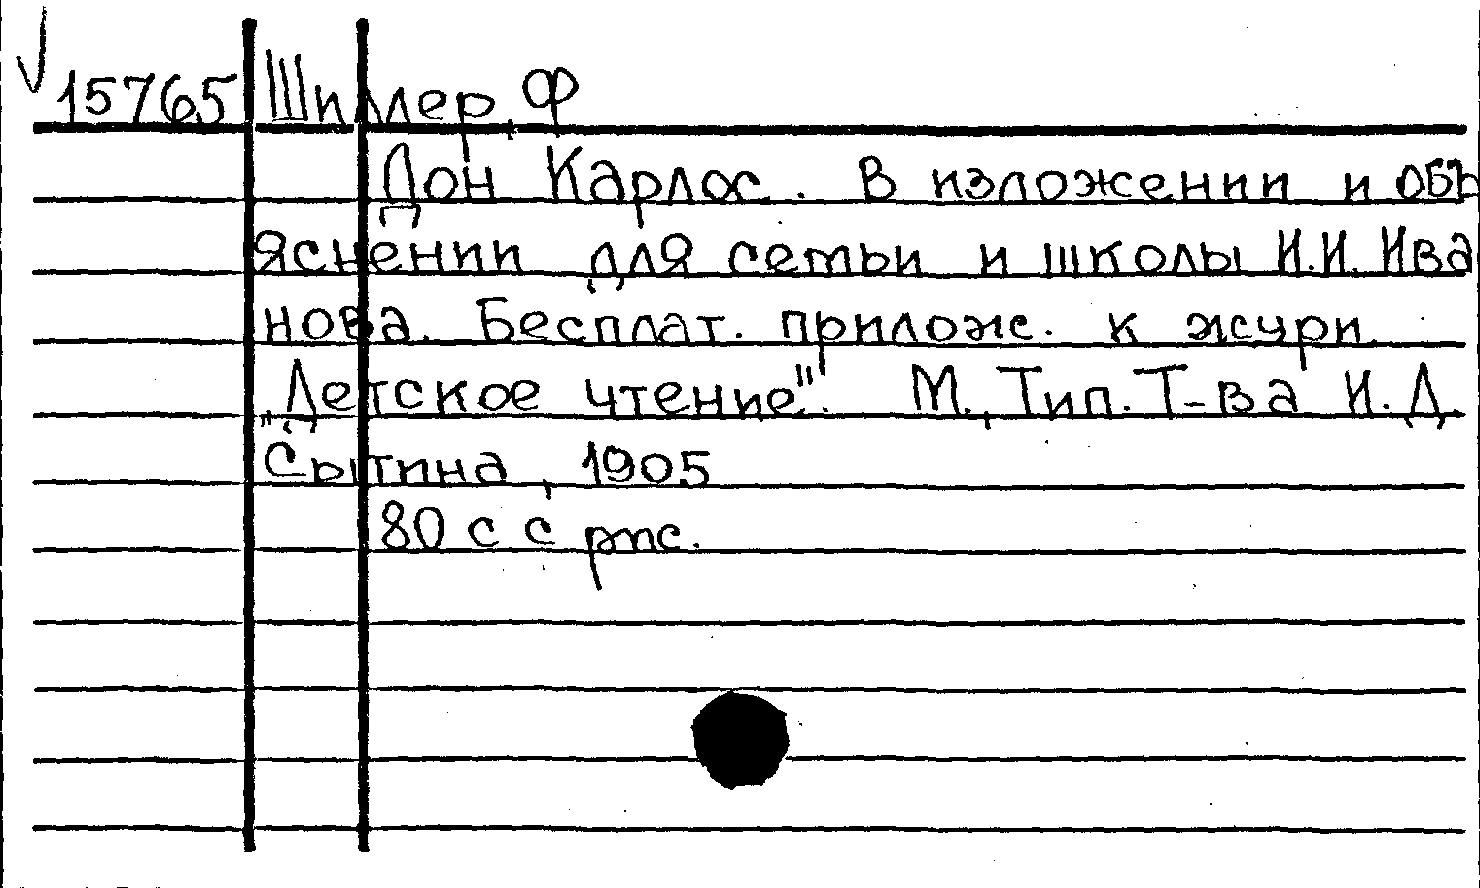 15765 Шиллер, Ф
Дон Карлос. В изложении и объ
яснении для семьи и школы И.И. Ива
нова. Бесплат. прилож. к журн.
"Детское чтение". М., Тип. Т-ва И.Д.
Сытина, 1905
80 с с рис.